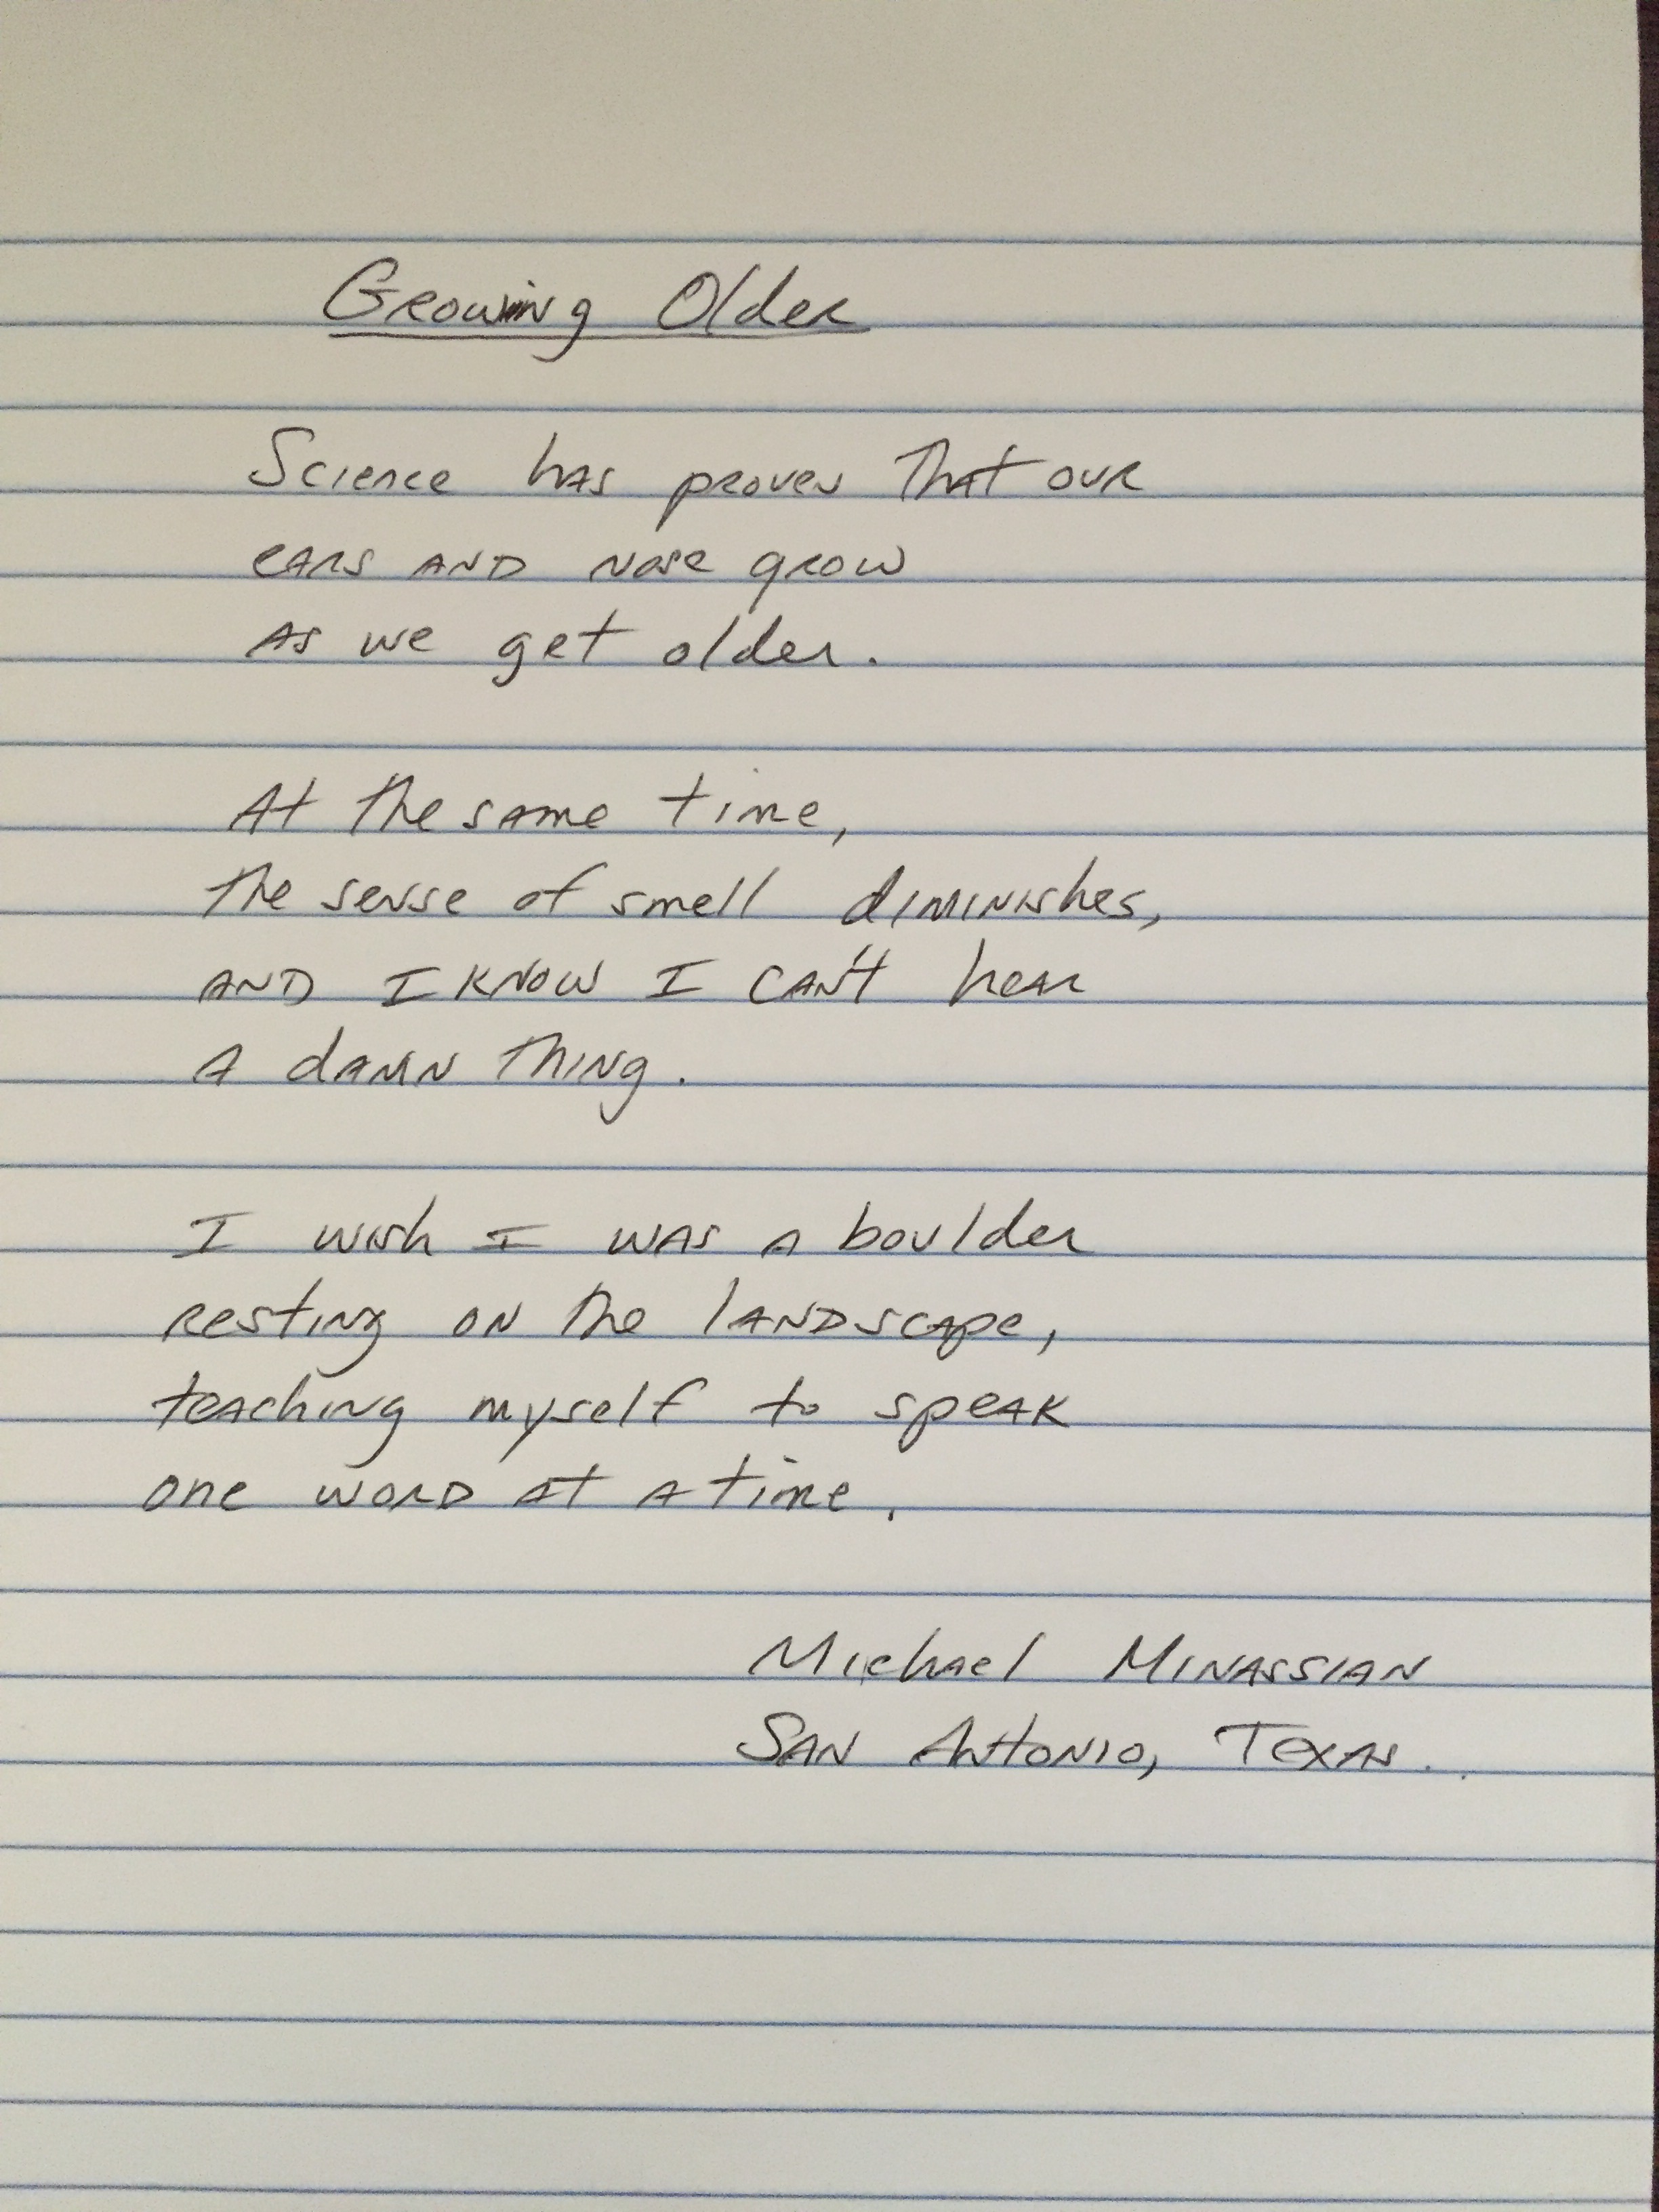 Growing Older
Science has proven that our
ears and nose grow
as we get older.
At the same time,
the sense of smell diminishes,
and I know I can't hear
a damn thing.
I wish I was a boulder
resting on the landscape,
teaching myself to speak
one word at a time.
Michael Minassian
San Antonio, Texas.